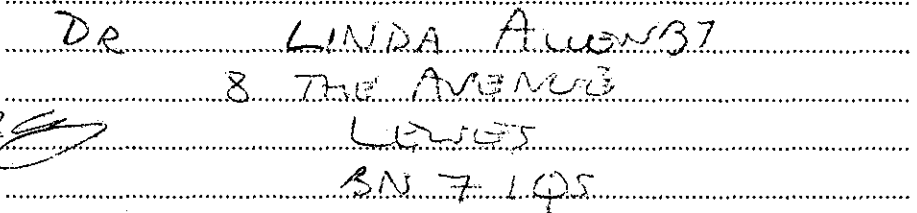 DR LINDA ALLENBY
8 THE AVENUE
LEWES
BN 7 1QS